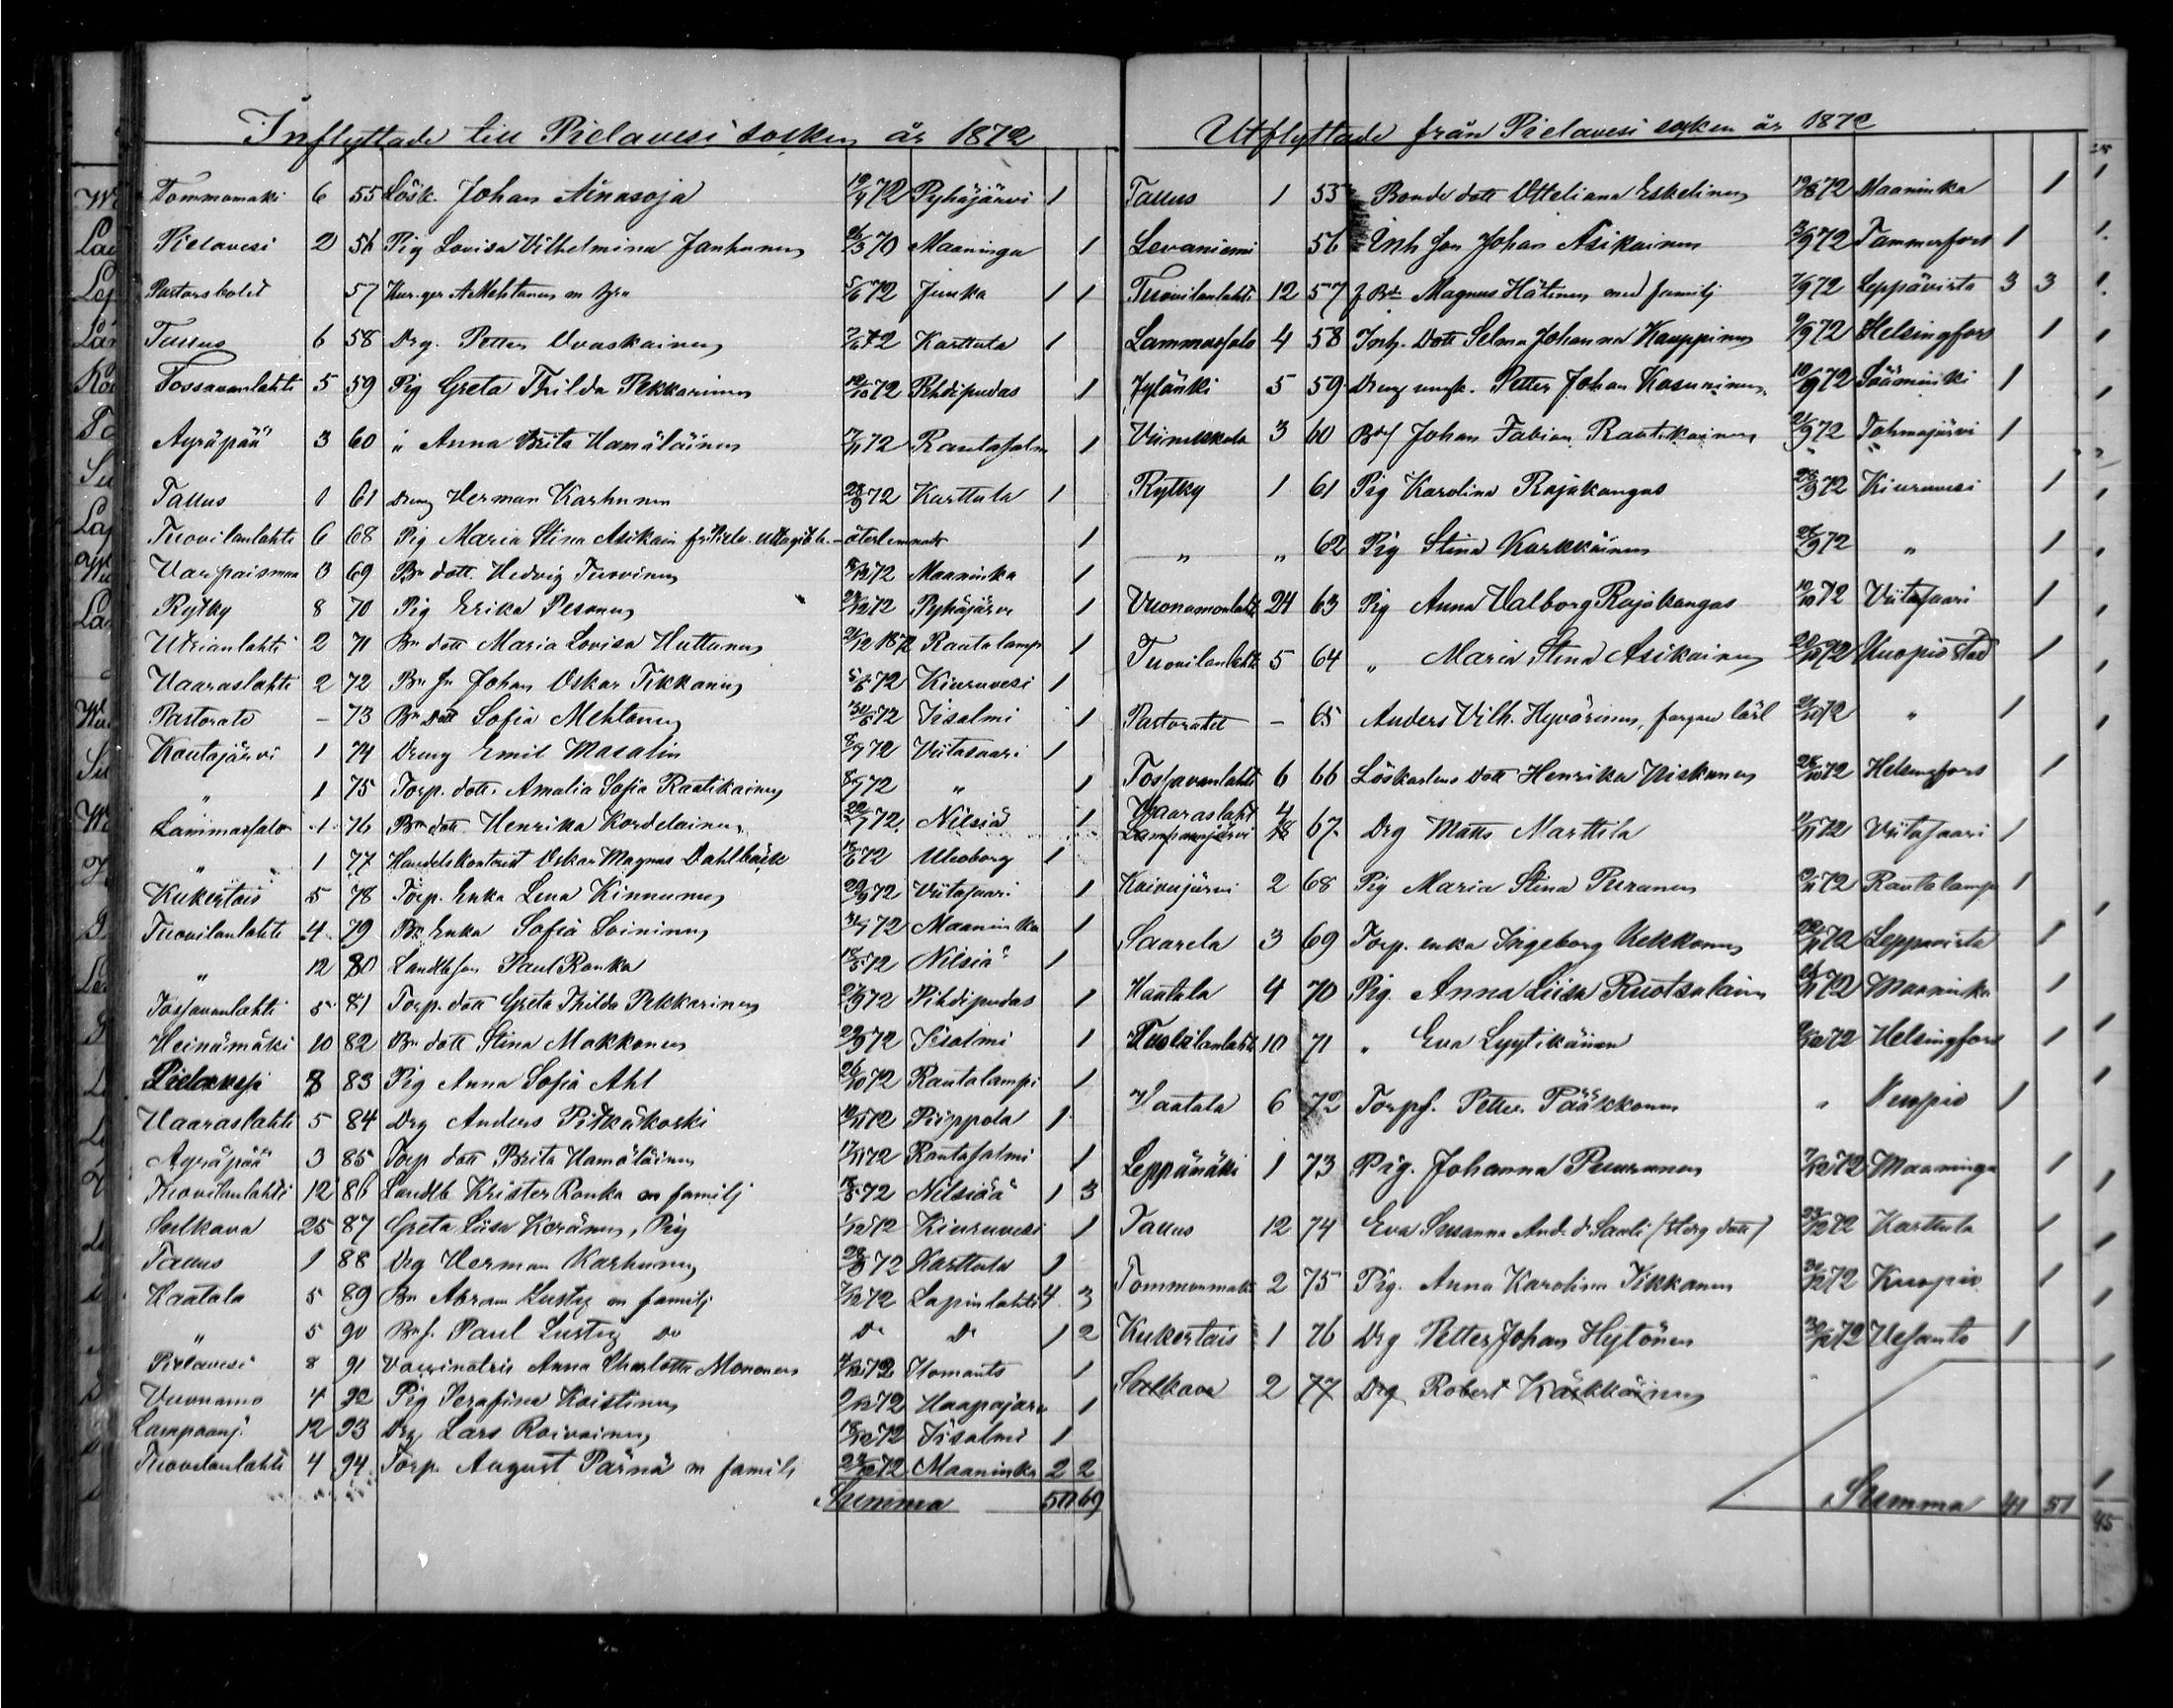 Inflyttade till Pielavesi socken år 1872
Tommomäki 6 55 Lösk. Johan Ainasoja 19/4 72 Pyhäjärvi 1
Pielavesi 2 56 Pig Lovisa Vilhelmina Janhunen 26/3 70 Maaninga 1
Pastorsbolet 57 A Mehtonen m 5/6 72 1 1
Tallus 6 58 Drg. Petter Ovaskainen 7/6 72 Karttula 1
Tossavanlahti 5 59 Pig Greta Thilda Pekkarinen 12/10 72 Pihdipudas 1
Äyräpää 3 60 " Anna Brita Hämäläinen 7/11 72 Rautasalm 1
Tallus 1 61 Dreng Herman Karhunen 28/9 72 Karttula 1
Tuovilanlahti 6 68 Pig Maria Stina Asikain återlemnadt 1
Varpaismaa 3 69 Bn dott. Hedvig Tuovinen 72 Maaninka 1
Rytky 8 70 Pig Erika Pesonen 72 Pyhäjärvi 1
Utrianlahti 2 71 Bn dott Maria Lovisa Huttunen 21/12 1872 Rautalamp 1
Vaaraslahti 2 72 Bn sn Johan Oskar Tikkanen 72 Kiuruvesi 1
Pastorate - 73 Bn Dott Sofia Mehtonen 72 Iisalmi 1
Koutajärvi 1 74 Dreng Emil Masalin 8/7 72 Viitasaari 1
" 1 75 Torp. dott. Amalia Sofia Raatikainen 8/7 72 " 1
Lammassalo 1 76 Bn dott Henrika Kordelainen 22/7 72 Nilsiä 1
" 1 77 Handelskontorist Oskar Magnus Dahlbäck 72 Uleoborg 1
Kukertais 5 78 Torp. Enka Lena Kinnunen 29/9 72 Viitasaari 1
Tuovilanlahti 4 79 Bn Enka Sofia Soininen 72 Maaninka 1
" 12 80 Landbson Paul Ronka 18/5 72 Nilsiä 1
Tossavanlahti 5 81 Torp. dott Greta Thilda Pekkarinen 27/9 72 Pihdipudas 1
Heinämäki 10 82 Bn dott Stina Makkonen 29/9 72 Iisalmi 1
Pielavesi 8 83 Pig Anna Sofia Ahl 26/10 72 Rautalampi 1
Vaaraslahti 5 84 Drg Anders Pitkäkoski 72 Piippola 1
Äyräpää 3 85 Torp dott Brita Hämäläinen 17/11 72 Rautasalmi 1
Tuovilanlahti 12 86 Landtb Krister Ronka m familj 18/5 72 Nilsiää 1 3
Sulkava 25 87 Greta Liisa Keränen, Pig 1/12 72 Kiuruvesi 1
Tallus 1 88 Drg Herman Karhunen 28/9 72 Karttula 1
Haatala 5 89 Bn Abram Lustig m familj 7/12 72 Lapinlahti 4 3
" 5 90 Bn s. Paul Lustig Do Do Do 1 2
Pielavesi 8 91 Vaccinatris Anna Charlotta Mononen 72 Ilomants 1
Vuonamo 4 92 Pig Serafina Koistinen 9/12 72 Haapajärv 1
Lampaanj. 12 93 Drg Lars Roivainen 18/12 72 Iisalmi 1
Tuovilanlahti 4 94 Torp. August Pärnä m familj 72 Maaninka 2 2
Summa 50 69
Utflyttade från Pielavesi socken år 1872
Tallus 1 55 Bonde dott Otteliana Eskelinen 19/8 72 Maaninka 1
Levaniemi 56 Inh son Johan Asikainen 3/9 72 Tammerfors 1
Tuovilanlahti 12 57 Magnus Hätinen med familj 7/9 72 Leppävirta 3 3
Lammassalo 4 58 Inh. Dott Selma Johanna Kauppinen 9/9 72 Helsingfors 1
Jylänki 5 59 Dreng Petter Johan Kosuninen 10/9 72 Sääminki 1
Viinikkala 3 60 Johan Fabian Rautikainen 21/9 72 Tohmajärvi 1
Rytky 1 61 Pig Karolina Rajakangas 28/9 72 Kiuruvesi 1
" " 62 Pig Stina Karkkäinen 28/9 72 " 1
Vuonamonlahti 24 63 Pig Anna Valborg Rajakangas 10/10 72 Viitasaari 1
Tuovilanlahti 5 64 " Maria Stina Asikainen 72 Kuopio stad 1
Pastoratet - 65 Anders Vilh. Hyvärinen, färgare lärl 72 " 1
Tossavanlahti 6 66 Löskarlens dott Henrika Niskanen 28/10 72 Helsingfors 1
Vaaraslaht 4
Lampaanjärvi 18 67 Drg Matts Marttila 11/11 72 Viitasaari 1
Koivujärvi 2 68 Pig Maria Stina Puranen 72 Rautalamp 1
Saarela 3 69 Torp. enka Ingeborg Kekkonen 72 Leppävirta 1
Haatala 4 70 Pig. Anna Liisa Ruotsalain 72 Maaninka 1
Tuovilanlahti 10 71 " Eva Lyytikäinen 72 Helsingfors 1
Haatala 6 72 Torp s. Petter Pääkkönen " Kuopio 1
Leppämäki 1 73 Pig. Johanna Puuranen 7/12 72 Maaninga 1
Tallus 12 74 Eva Susanna And. dr Sauli 23/12 72 Karttula 1
Tommonmäki 2 75 Pig. Anna Karolina Tikkanen 72 Kuopio 1
Kukertais 1 76 Drg Petter Johan Hytönen 72 Vesanto 1
Sulkava 2 77 Drg Robert Kärkkäinen
Summa 41 51